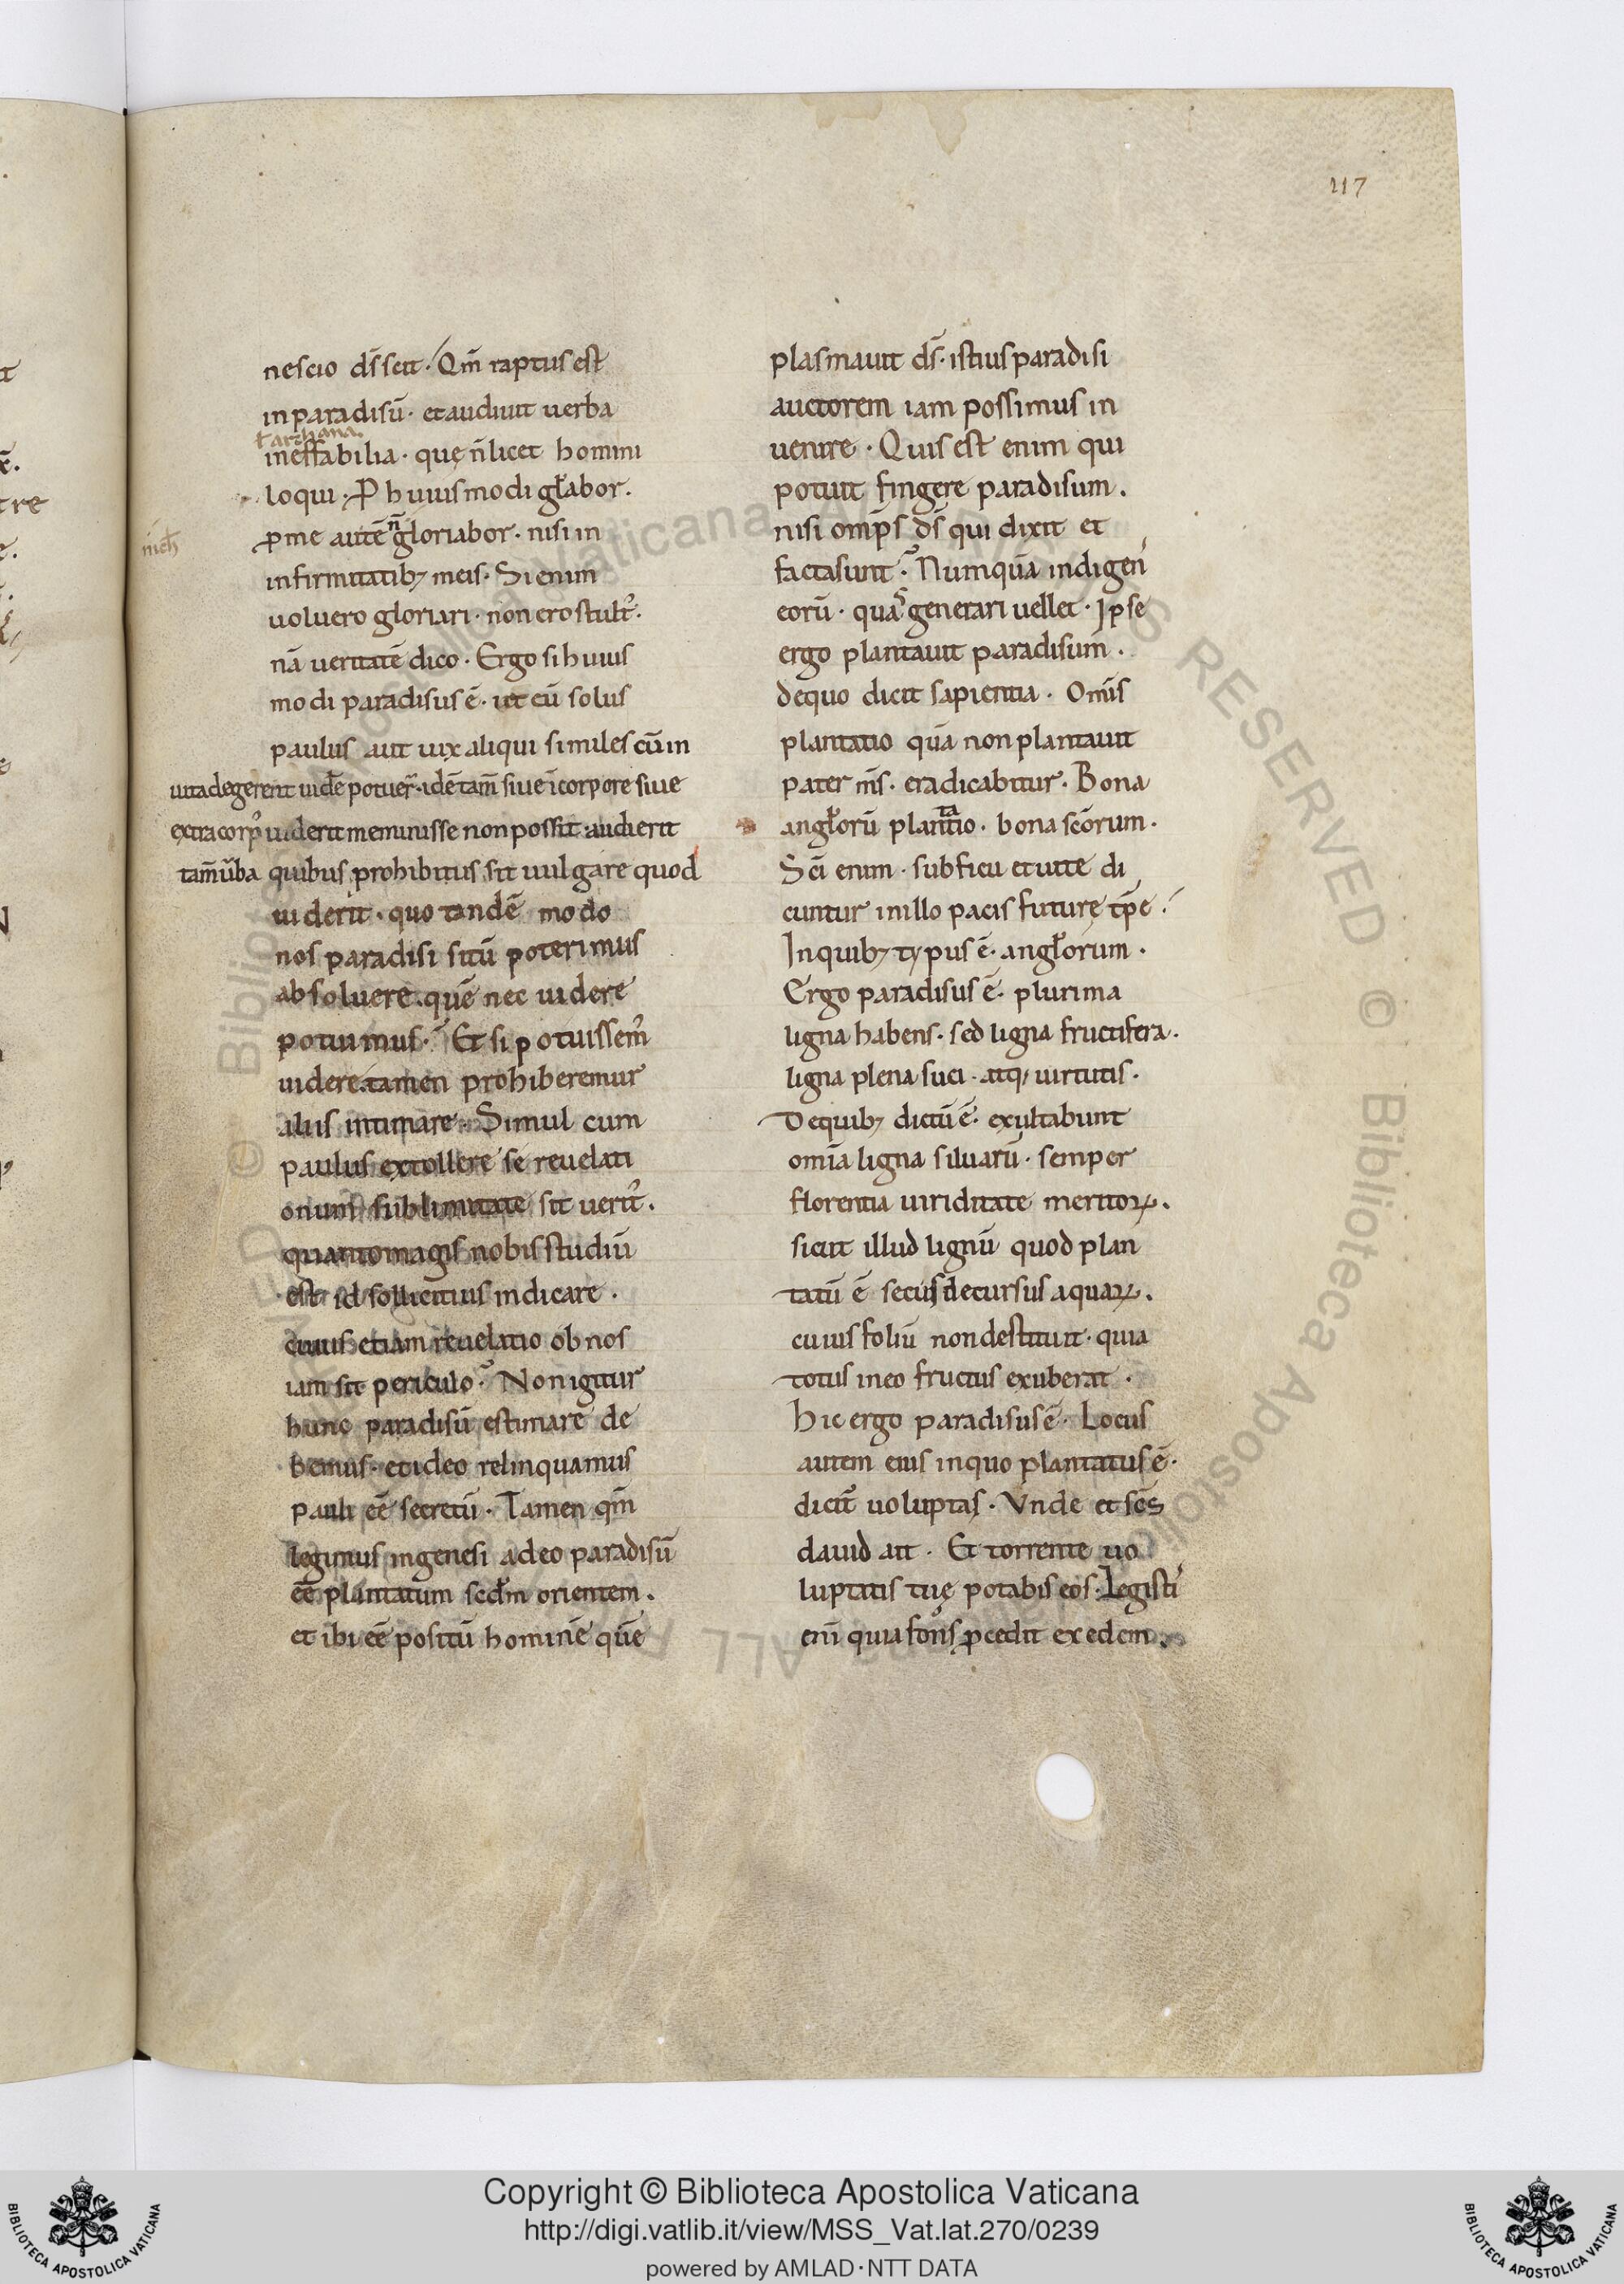 117
nescio ds̄ scit. Qm̄ raptus est
in paradisū. et audiuit uerba
ł archana.
ineffabilia. quę n̄ licet homini
loqui. ꝓ huiusmodi gl̄abor.
ꝓ me autē n̄ gloriabor. nisi in
infirmitatibꝫ meis. Si enim
uoluero gloriari. non ero stult᾿.
nā ueritatē dico. Ergo si huius
modi paradisus ē. ut eū solus
paulus aut uix aliqui similes cū in
uita degerent uidē potuer̄. idē tam̄ siue ī corpore siue
extra corp᾿ uiderit meminisse non possit. audierit
tam̄ ūba quibus prohibitus sit uulgare quod
uiderit. quo tandē modo
nos paradisi sitū poterimus
absoluere. quē nec uidere
potuimus. Et si potuissem᾿
uidere. tamen prohiberemur
aliis intimare. Simul cum
paulus extollere se reuelati
onum sublimitate sit uerit᾿.
quanto magis nobis studiū
est id sollicitius indicare.
cuius etiam reuelatio ob nos
iam sit periculo. Non igitur
hunc paradisū estimare de
bemus. et ideo relinquamus
pauli eē secretū. Tamen qm̄
legimus in genesi a deo paradisū
eē plantatum scd̄m orientem.
et ibi eē positū hominē quē
plasmauit ds̄. istius paradisi
auctorem iam possimus in
uenire. Quis est enim qui
potuit fingere paradisum.
nisi omp̄s ds̄ qui dixit et
facta sunt. Numquā indigens
eorū. quą generari uellet. Ipse
ergo plantauit paradisum.
de quo dicit sapientia. Omīs
plantatio quā non plantauit
pater ms̄. eradicabitur. Bona
angl̄orū plantatio. bona scōrum.
Scī enim. sub ficu et uite di
cuntur in illo pacis futurę tp̄e.
In quibꝫ typus ē. angl̄orum.
Ergo paradisus ē. plurima
ligna habens. sed ligna fructifera.
ligna plena suci. atqꝫ uirtutis.
De quibꝫ dictū ē. exultabunt
omīa ligna siluarū. semper
florentia uiriditate meritoꝝ.
sicut illud lignū quod plan
tatū ē secus decursus aquaꝝ.
cuius foliū non destituit. quia
totus in eo fructus exuberat.
Hic ergo paradisus ē. Locus
autem eius in quo plantatus ē.
dicit᾿ uoluptas. Vnde et scs̄
dauid ait. Et torrente uo
luptatis tuę potabis eos. Legisti
enī quia fons ꝓcedit ex edem.
Copyright © Biblioteca Apostolica Vaticana
http://digi.vatlib.it/view/MSS_Vat.lat.270/0239
powered by AMLAD·NTT DATA
BIBLIOTECA APOSTOLICA VATICANA
BIBLIOTECA APOSTOLICA VATICANA